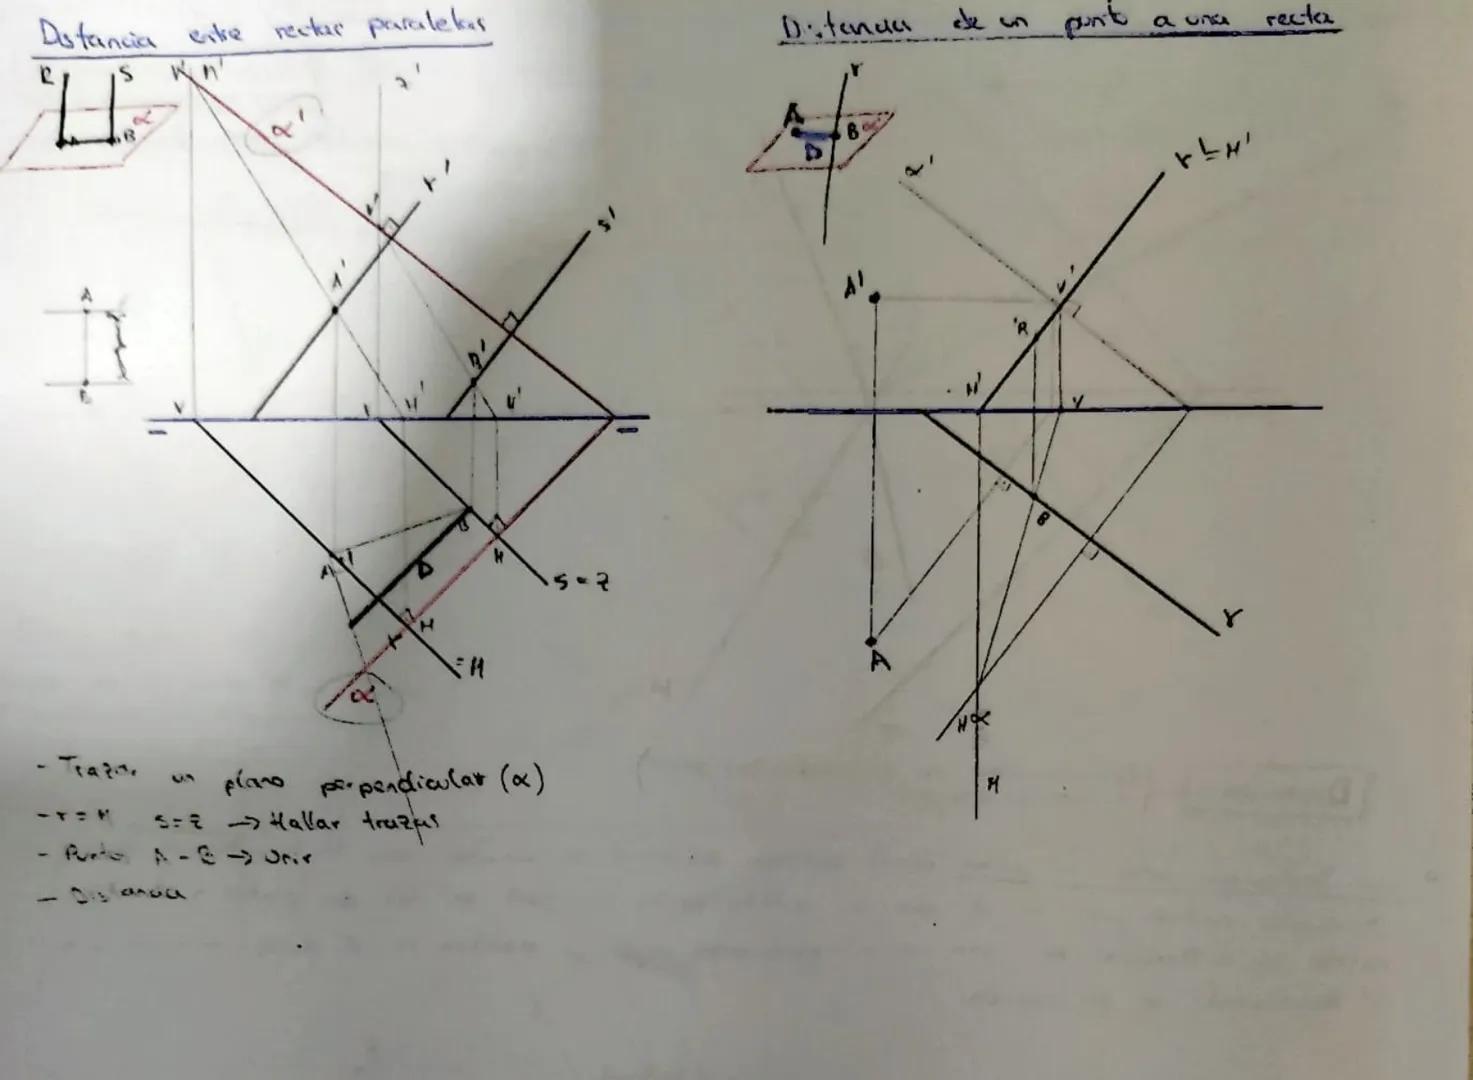 Distancia entre rectas paralelas
R
S
α
A
B
V' M'
z'
α'
r'
V'
s'
A'
B'
A
B
V
V
H'
V'
B
A
D
H
s = z
H
= M
α
- Trazar un plano perpendicular (α)
- r = M s = z → Hallar trazas
- Puntos A - B → Unir
- Distancia
Distancia de un punto a una recta
r
A
B
α
D
α'
r' = M'
A'
V'
'B
H'
V
B
r
A
H
α
M